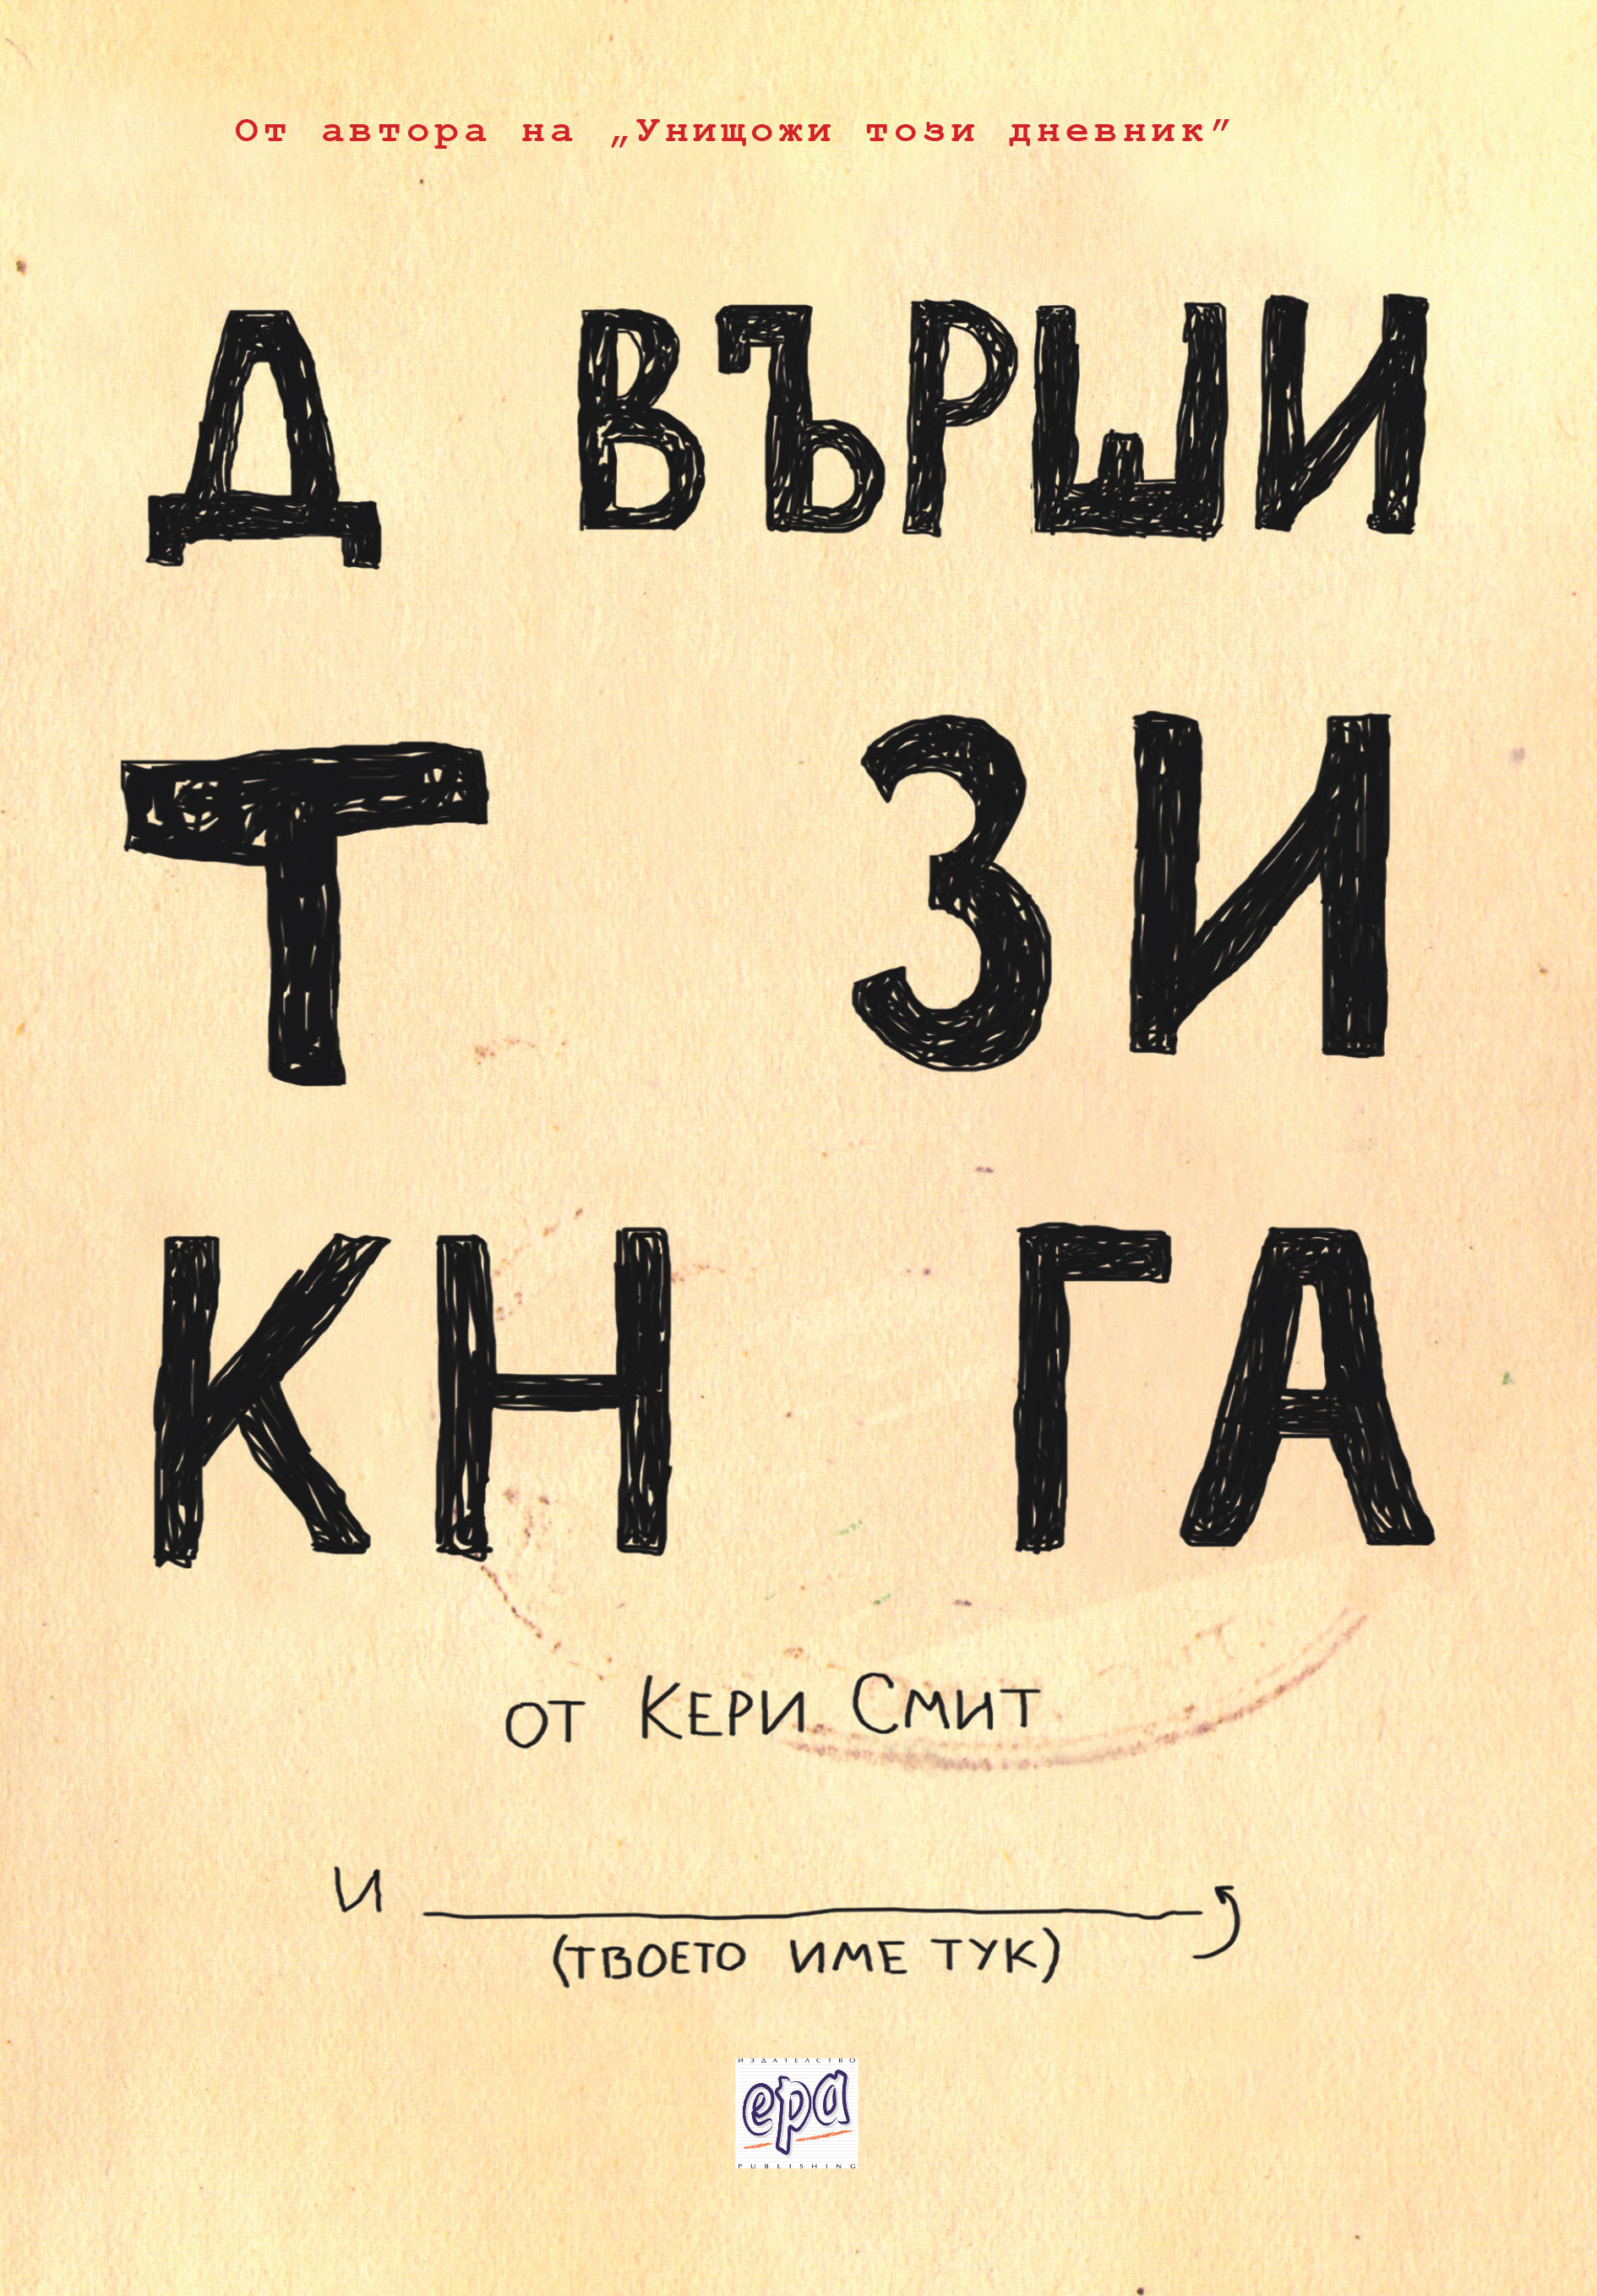 От автора на „Унищожи този дневник”
Д ВЪРШИ
Т ЗИ
КН ГА
от Кери Смит
И
(ТВОЕТО ИМЕ ТУК)
ИЗДАТЕЛСТВО
ера
PUBLISHING